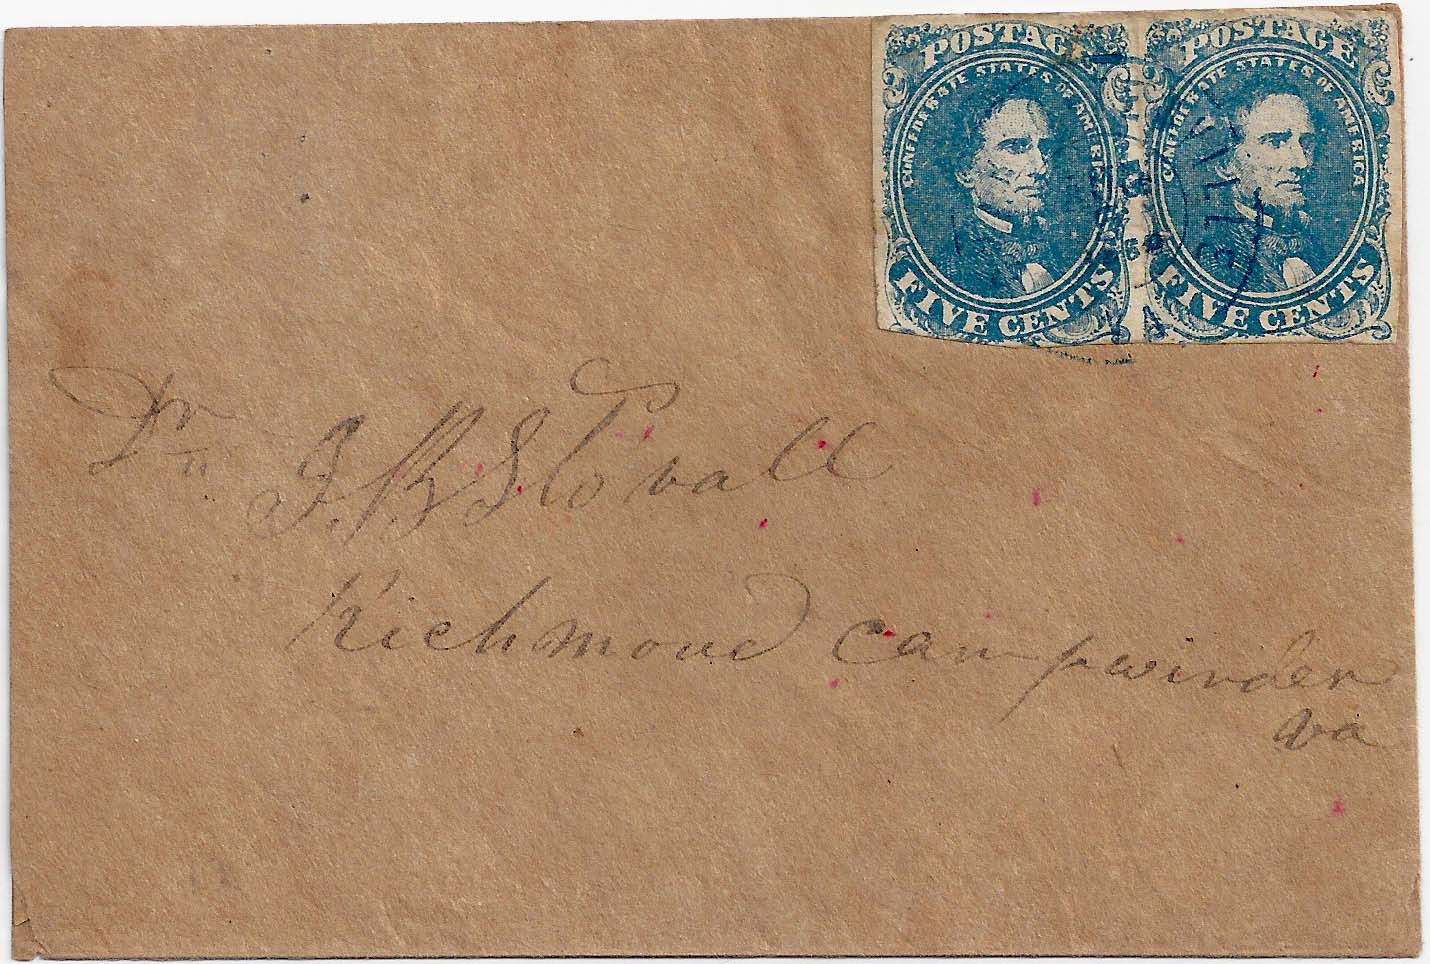 POSTAGE
CONFEDERATE STATES OF AMERICA
FIVE CENTS
POSTAGE
CONFEDERATE STATES OF AMERICA
FIVE CENTS
Dr J. B Stovall
Richmond camp winder
va